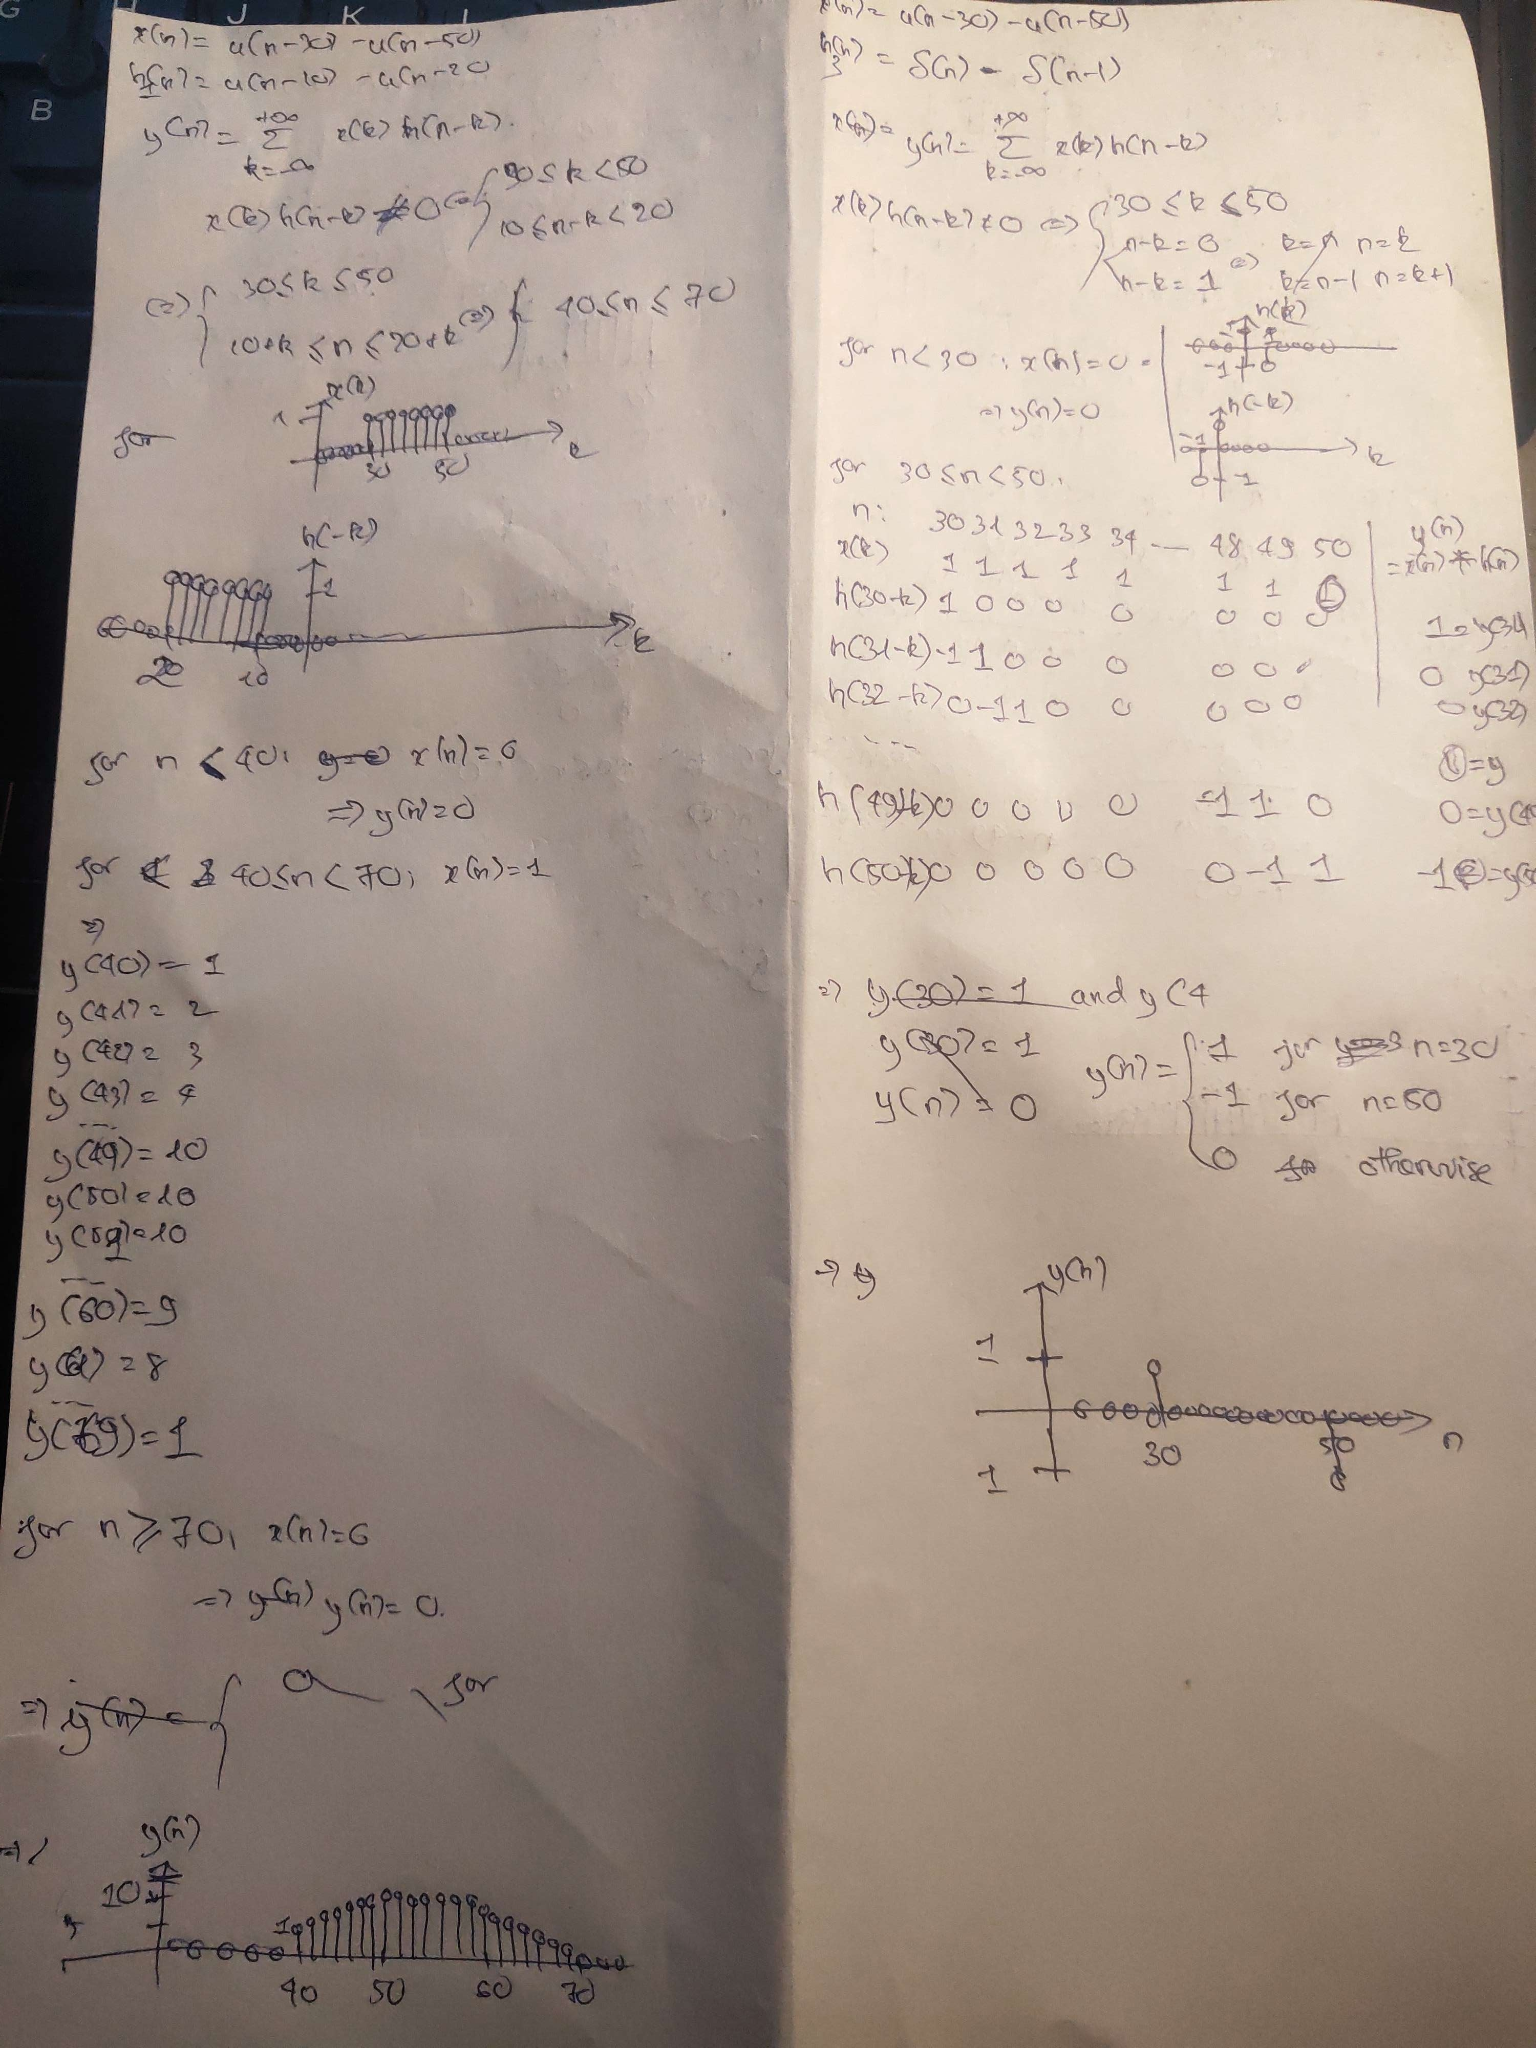 G H J K L
B
x(n) = u(n-30) - u(n-50)
h1(n) = u(n-10) - u(n-20
y(n) = +∞ Σ k=-∞ x(k) h(n-k).
x(k) h(n-k) ≠ 0 (=) { 30 ≤ k < 50
10 ≤ n-k < 20
(=) { 30 ≤ k ≤ 50
10+k ≤ n ≤ 20+k (=) { 40 ≤ n ≤ 70
for
x(k)
1
30 50 k
h(-k)
1
20 10 k
for n < 40, x(n) = 0
=> y(n) = 0
for 40 ≤ n < 70, x(n) = 1
=>
y(40) = 1
y(41) = 2
y(42) = 3
y(43) = 4
---
y(49) = 10
y(50) = 10
y(51) = 10
---
y(60) = 9
y(61) = 8
---
y(69) = 1
for n ≥ 70, x(n) = 0
=> y(n) y(n) = 0.
=> y(n) = { 0 for
=>
y(n)
10
1
40 50 60 70
x(n) = u(n-30) - u(n-50)
h3(n) = δ(n) - δ(n-1)
y(n) = +∞ Σ k=-∞ x(k) h(n-k)
x(k) h(n-k) ≠ 0 (=) { 30 ≤ k ≤ 50
n-k = 0 k=n n=k
n-k = 1 (=) k=n-1 n=k+1
for n < 30 : x(n) = 0
=> y(n) = 0
h(k)
1
-1 0
h(-k)
-1
k
0 -1
for 30 ≤ n < 50,
n: 30 31 32 33 34 — 48 49 50
y(n)
= x(n) * h(n)
x(k) 1 1 1 1 1 1 1 1
h(30-k) 1 0 0 0 0 0 0 0
h(31-k) -1 1 0 0 0 0 0 0 0 y(31)
h(32-k) 0 -1 1 0 0 0 0 0 0 y(32)
---
0 = y
h(49-k) 0 0 0 0 0 -1 1 0 0 = y(49
h(50-k) 0 0 0 0 0 0 -1 1 -1 = y(50
=> y(30) = 1 and y(4
y(30) = 1
y(n) = 0
y(n) = { 1 for n=30
-1 for n=50
0 otherwise
=> y
y(n)
1
30 50 n
1